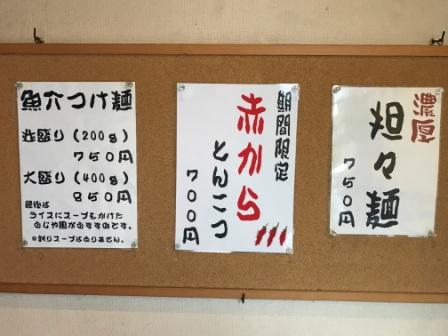 魚介つけ麺
並盛り(200g)
750円
大盛り(400g)
850円
最後は
ライスにスープをかけた
おじや風がおすすめです。
※割りスープはありません。
期間限定
赤から
とんこつ
700円
濃厚
担々麺
750円